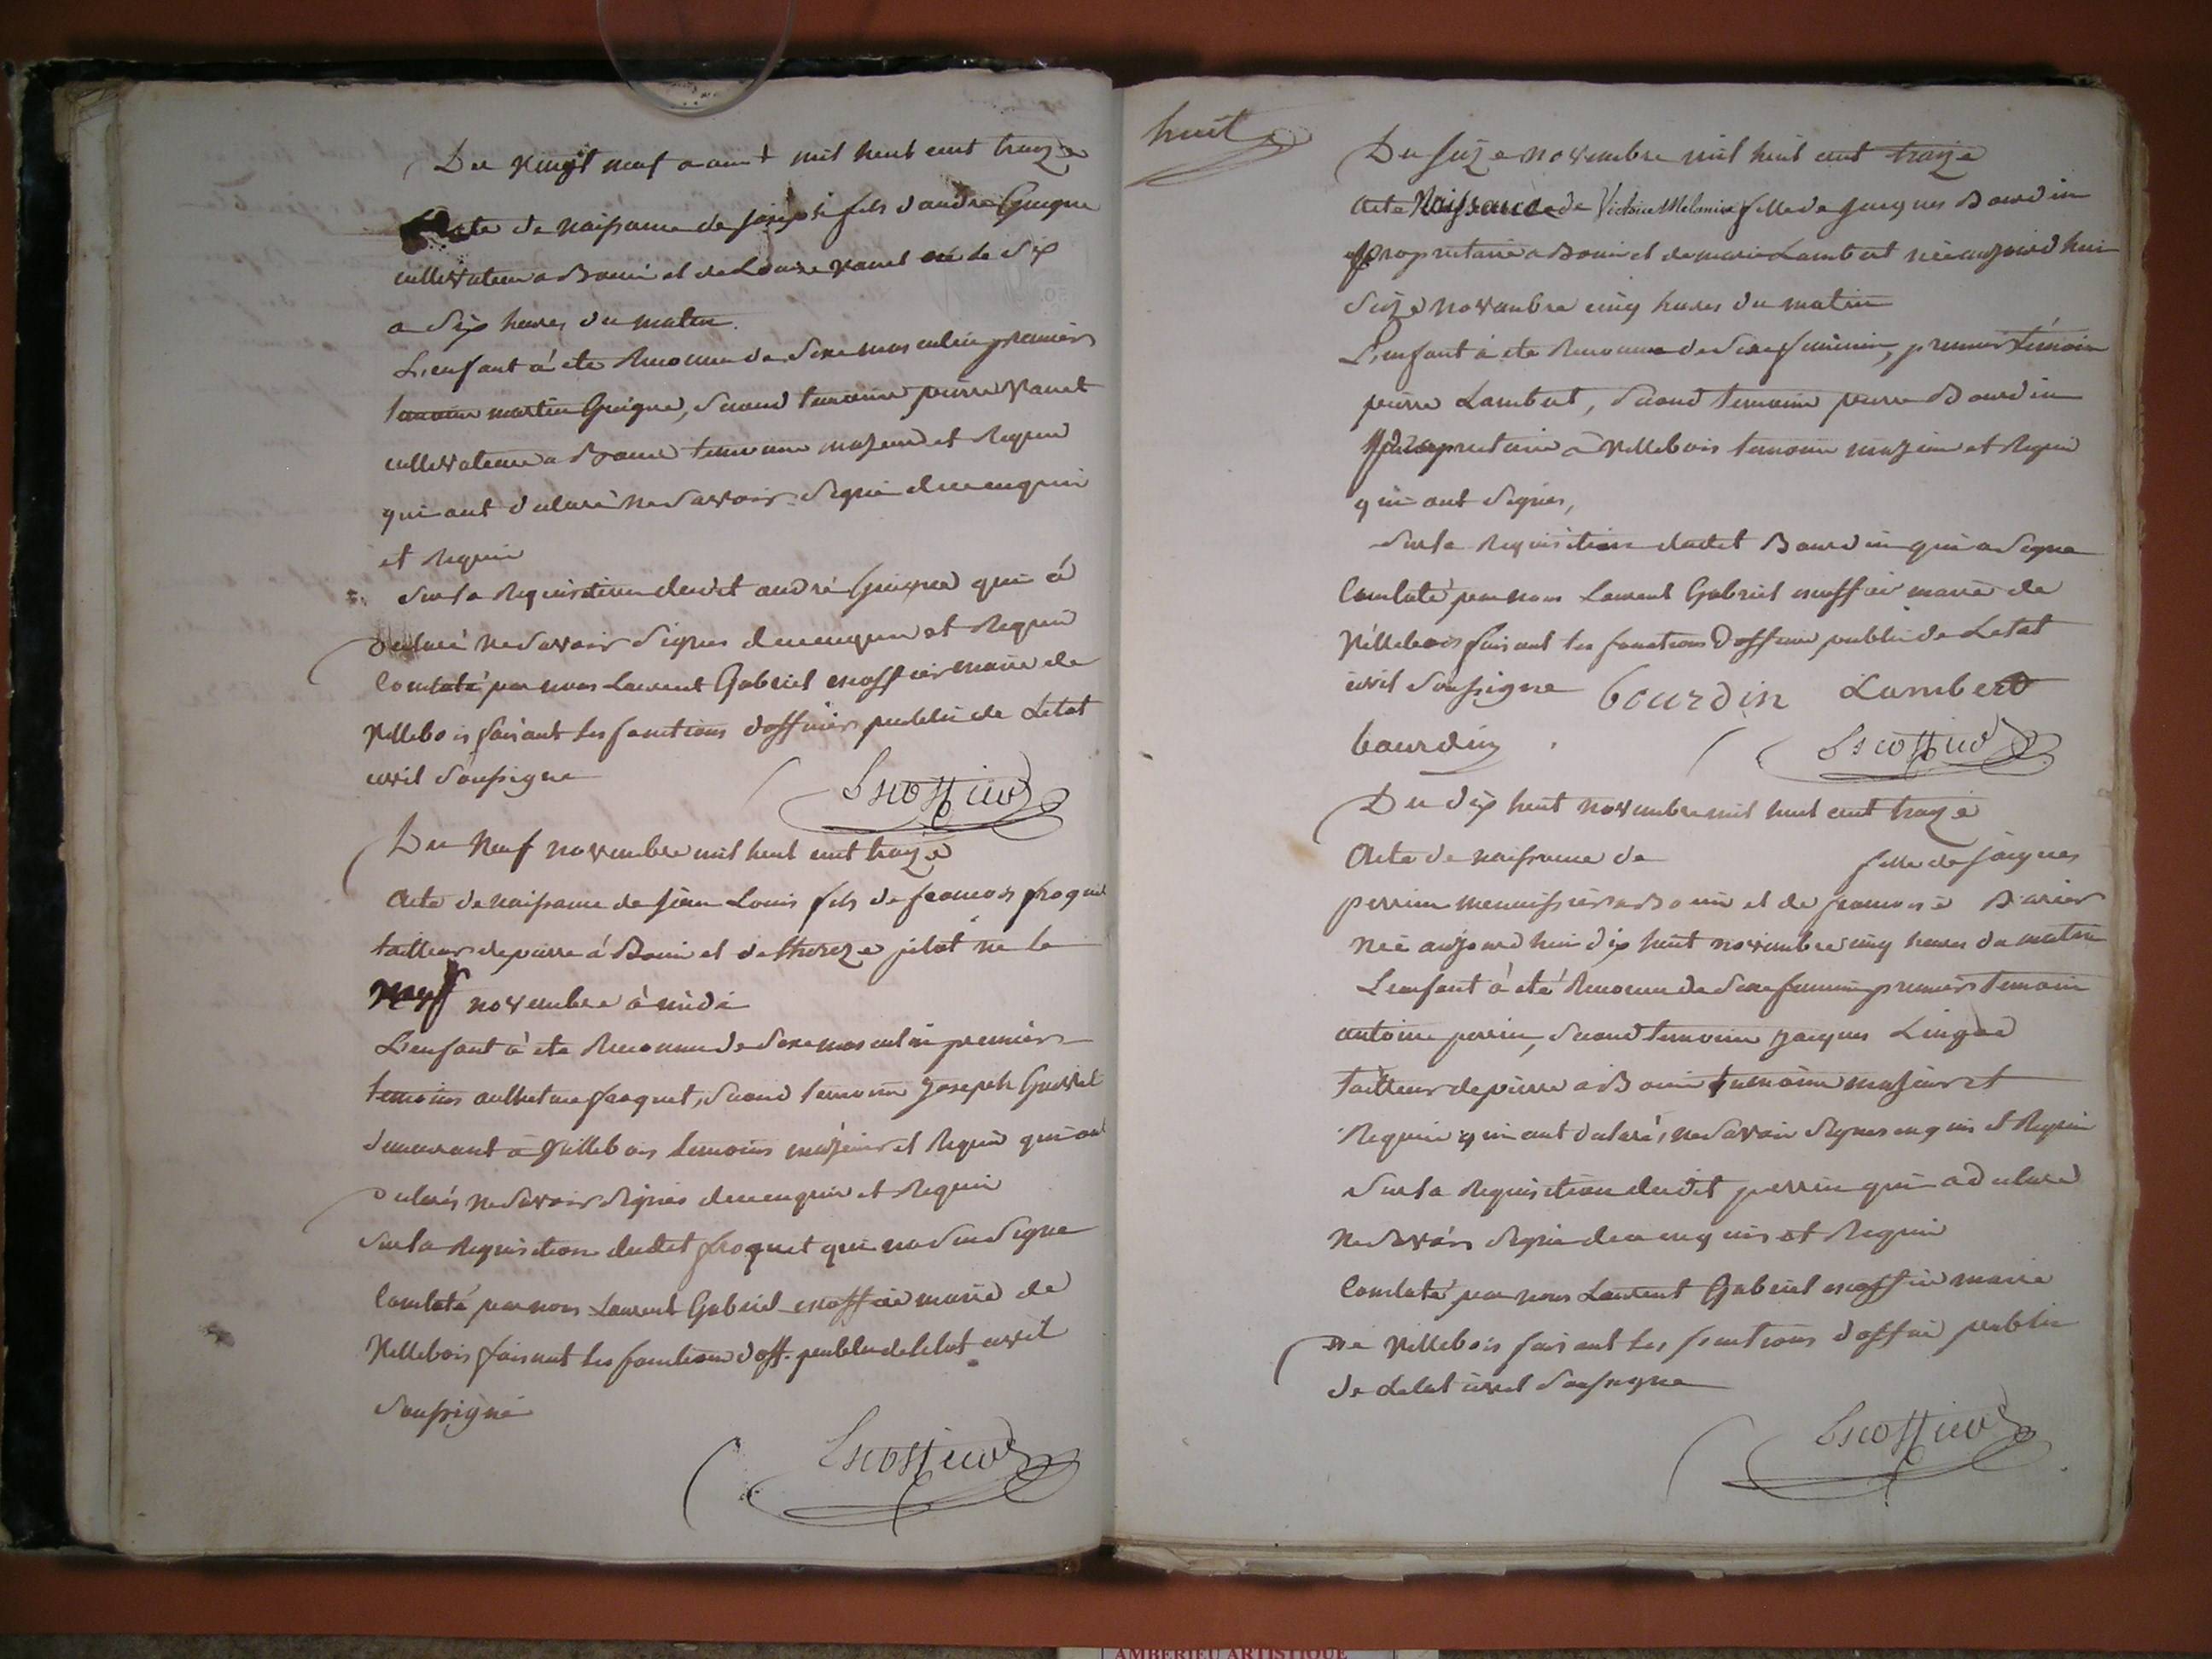 Du Vingt neuf aout mil huit cent treize
acte de naissance de joseph fils d'andré Guigue
cultivateur a Bouis et de Louise vanet né le dix
a dix heures du matin.
L'enfant à été Reconnu de Sexe masculin premier
temoin martin Guigue, Second temoin pierre Vanet
cultivateur a Bouis temoins majeur et Requis
qui ont declaré ne Savoir Signé de ce enquis
et Requis
Sur la Requisition dudit andré Guigue qui à
declaré ne Savoir Signer de ce enquis et Requis
Constaté par nous Laurent Gabriel escoffier maire de
Villebois faisant les fonctions d'officier public de Létat
civil Soussigne
Escoffier
Du Neuf novembre mil huit cent treize
Acte de naissance de jean Louis fils de francois froquet
tailleur de pierre à Bouis et de thereze jilot né le
Neuf novembre à midi
L'enfant à été Reconnu de Sexe masculin premier
temoins anthelme froquet, Second temoin joseph
demeurant à Villebois temoins majeur et Requis qui ont
declarés ne Savoir Signés de ce enquis et Requis
Sur la Requisition dudit froquet qui na Su Signe
Constaté par nous Laurent Gabriel escoffier maire de
Villebois faisant les fonctions d'off. public de letat civil
Soussigné
Escoffier
huit
Du Seize novembre mil huit cent treize
Acte Naissance de Victoire Melanie fille de jacques Bourdin
proprietaire a Bouis et de marie Lambert née aujourdhui
Seize novembre cinq heures du matin
L'enfant à été Reconnu de Sexe feminin, premier témoin
pierre Lambert, Second temoin pierre Bourdin
propriétaire à Villebois temoins majeur et Requis
qui ont Signés,
Sur la Requisition dudit Bourdin qui a Signe
Constaté par nous Laurent Gabriel escoffier maire de
Villebois faisant les fonctions D'officier public de Letat
civil Soussigne bourdin Lambert
bourdin Escoffier
Du dix huit novembre mil huit cent treize
Acte de naissance de fille de jacques
perrin menuissier a Bouis et de francoise
Née aujourdhui dix huit novembre cinq heures du matin
L'enfant à été Reconnu de Sexe feminin premier temoin
antoine perrin, Second temoin jacques
tailleur de pierre a Bouis temoins majeur et
Requis qui ont declaré, ne Savoir Signer enquis et Requis
Sur la Requisition dudit perrin qui a declaré
ne Savoir Signé de ce enquis et Requis
Constaté par nous Laurent Gabriel escoffier maire
de Villebois faisant les fonctions d'officier public
de Letat civil Soussigne
Escoffier
AMBERIEU ARTISTIQUE